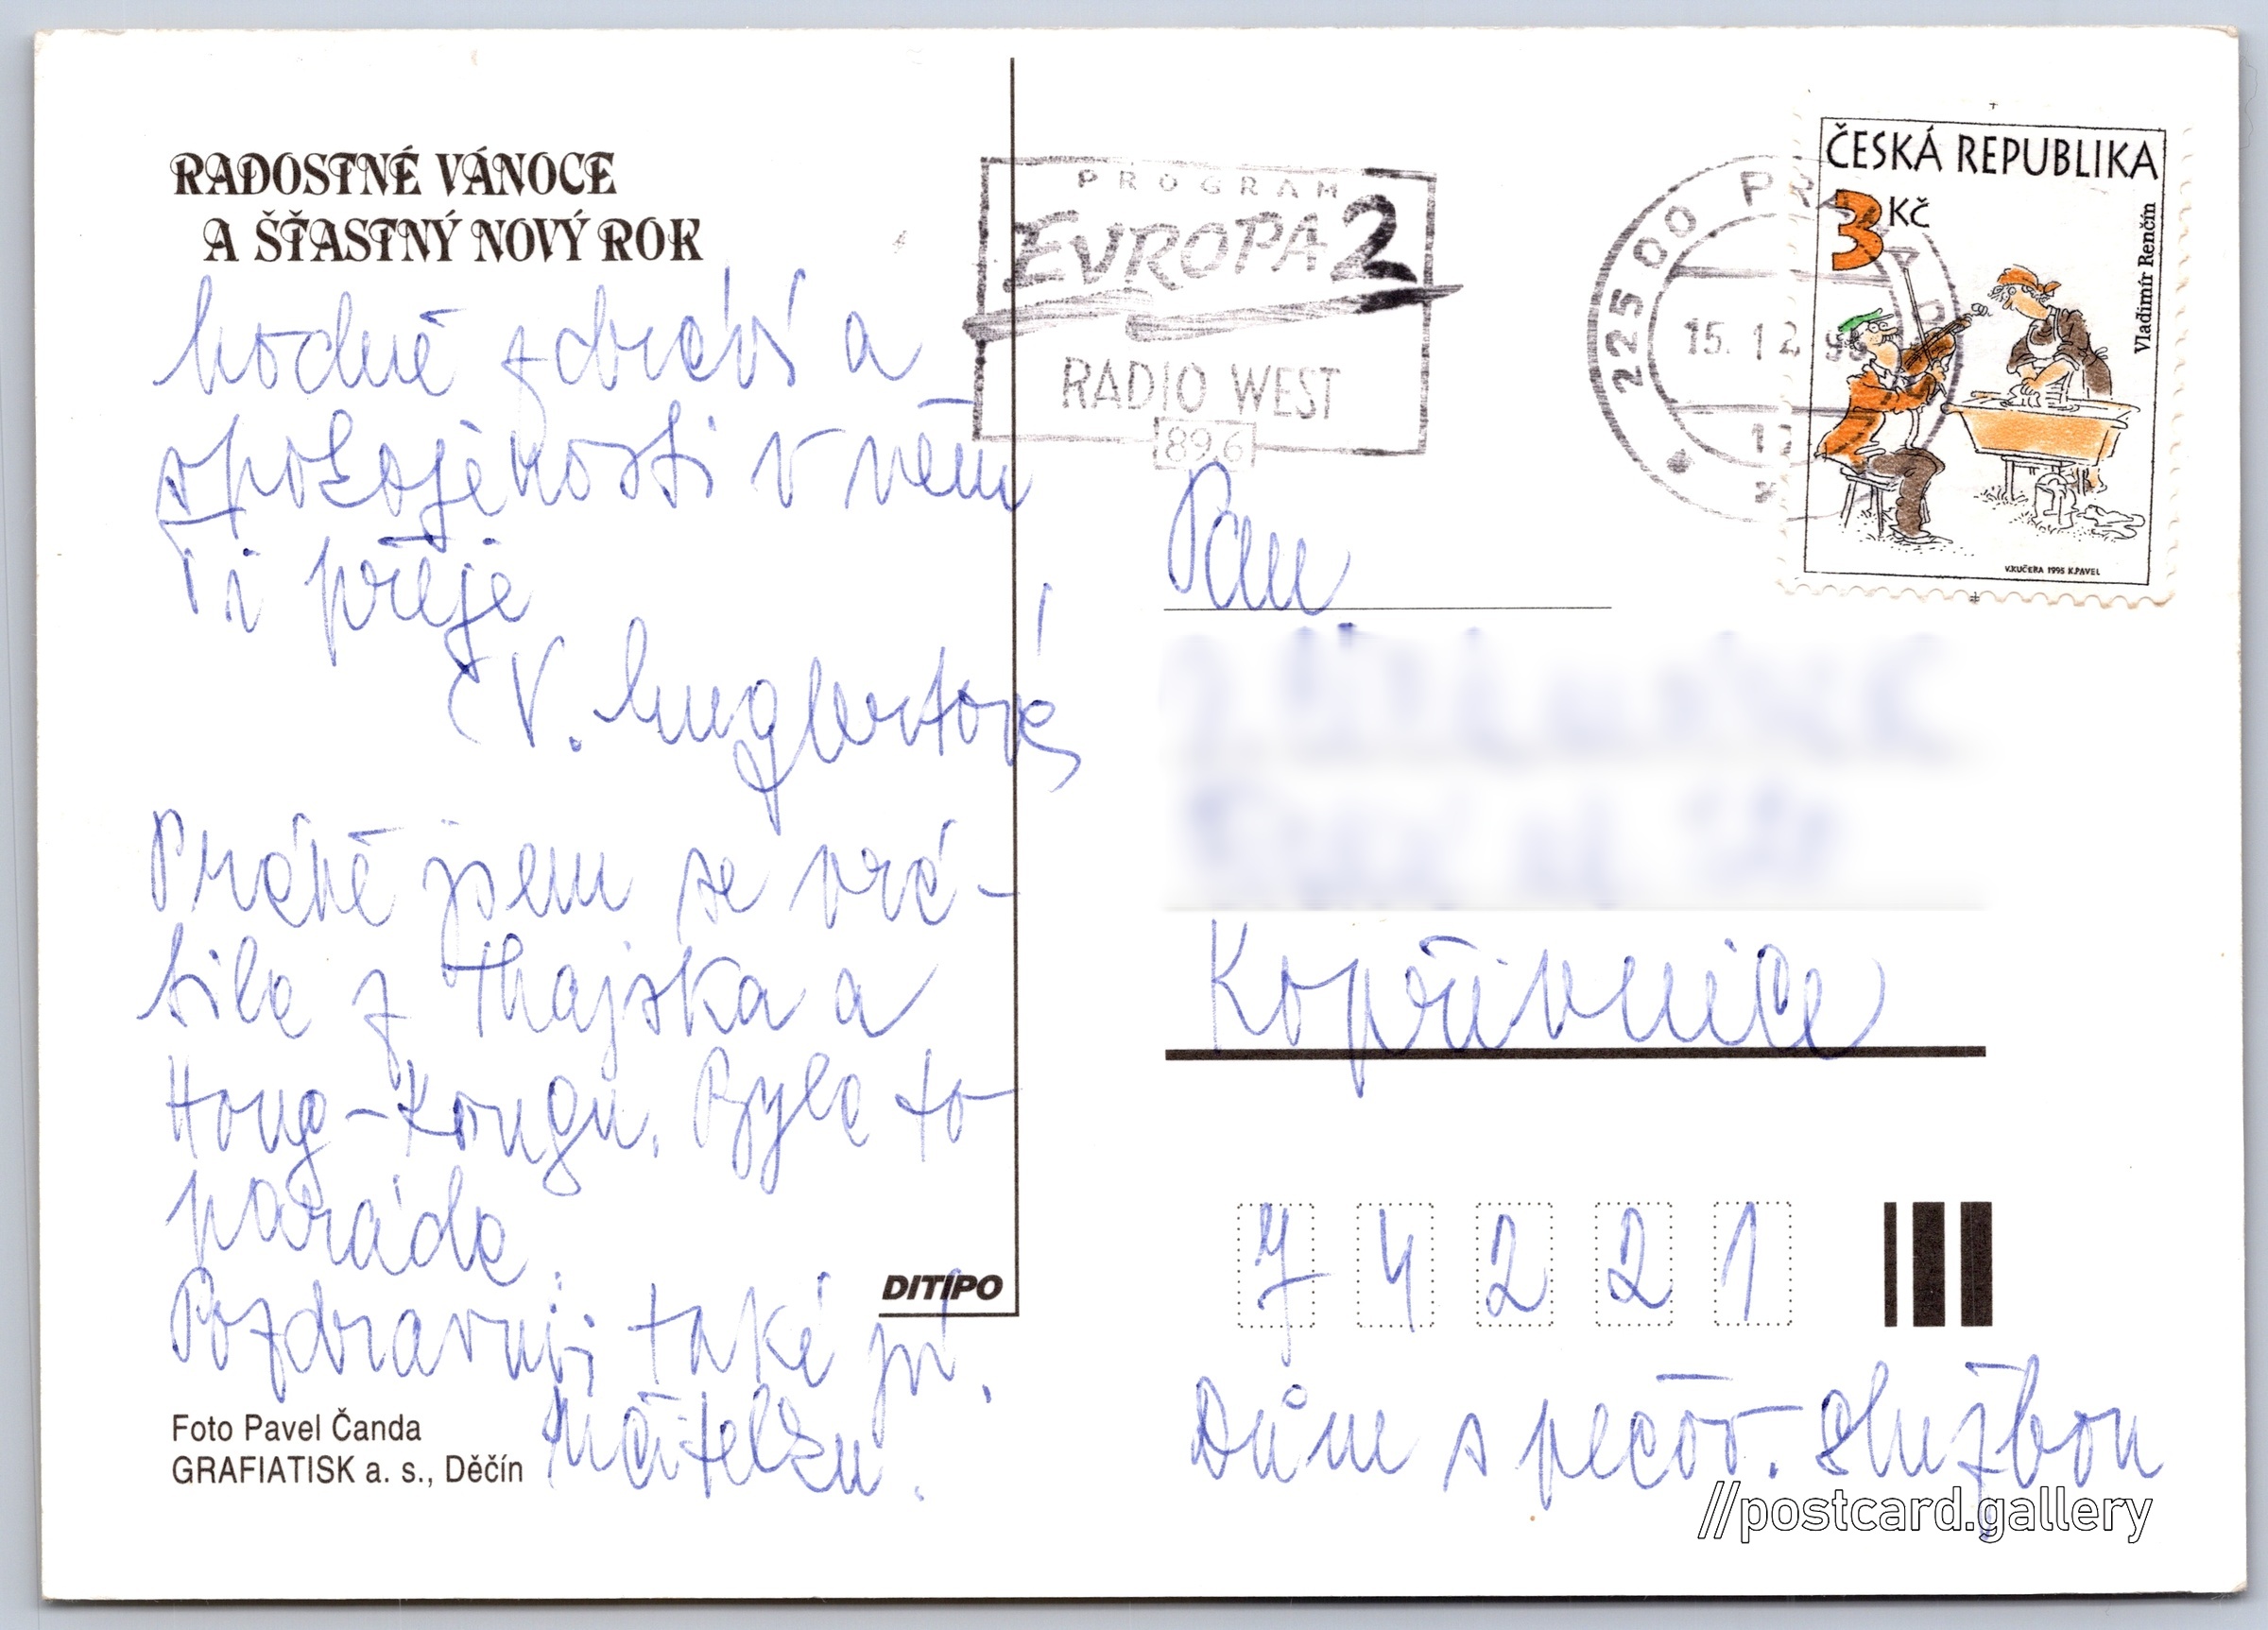 RADOSTNÉ VÁNOCE
A ŠŤASTNÝ NOVÝ ROK
hodně zdraví a
spokojenosti v něm
Ti přeje
V.
Právě jsem se vrá-
tila z Thajska a
Hong-Kongu. Byla to
paráda.
Pozdravuji také pí.
učitelku.
DITIPO
Foto Pavel Čanda
GRAFIATISK a. s., Děčín
PROGRAM
EVROPA 2
RADIO WEST
89.6
225 00 PRAHA
15.12.95
17
ČESKÁ REPUBLIKA
3 Kč
Vladimír Renčín
V.KUČERA 1995 K.PAVEL
Pan
Kopřivnice
74221
Dům s pečov. službou
//postcard.gallery